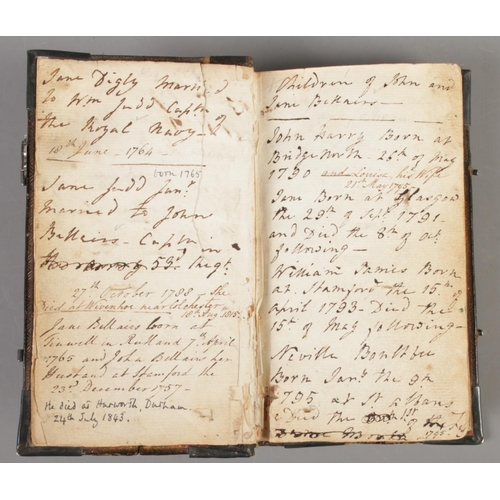 Jane Digby Married
to Wm Judd Captn of
the Royal Navy-
18th June - 1764-
born 1765
Jane Judd Junr
Married to John
Bellairs - Captn in
the army 53d Regt.
27th October 1788 - She
died at Wivenhoe near Colchester
18th Aug 1815
Jane Bellairs born at
Tinwell in Rutland 7th April
1765 and John Bellairs her
Husband at Stamford the
23d December 1757-
He died at Haworth, Durham
24th July 1843.
Children of John and
Jane Bellairs-
John Harry Born at
Bridge North - 26th of May
1790 and Louisa his Wife
21st May 1795
Jane Born at Glasgow
the 29th of Sept 1791-
and Died the 8th of Oct
following-
William James Born
at Stamford the 15th of
April 1793 - Died the
15th of May following-
Neville Boultbee
Born Janr the 9th
1795 at St Albans
& Died the 1st
of
1795